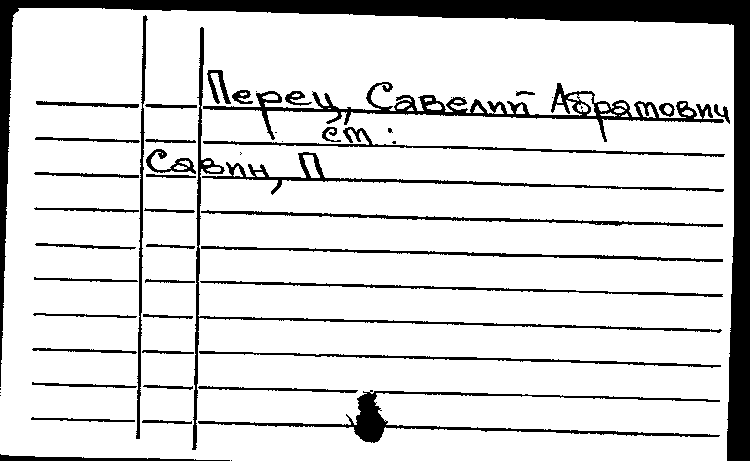 Перец, Савелий Абрамович
см:
Савин, П